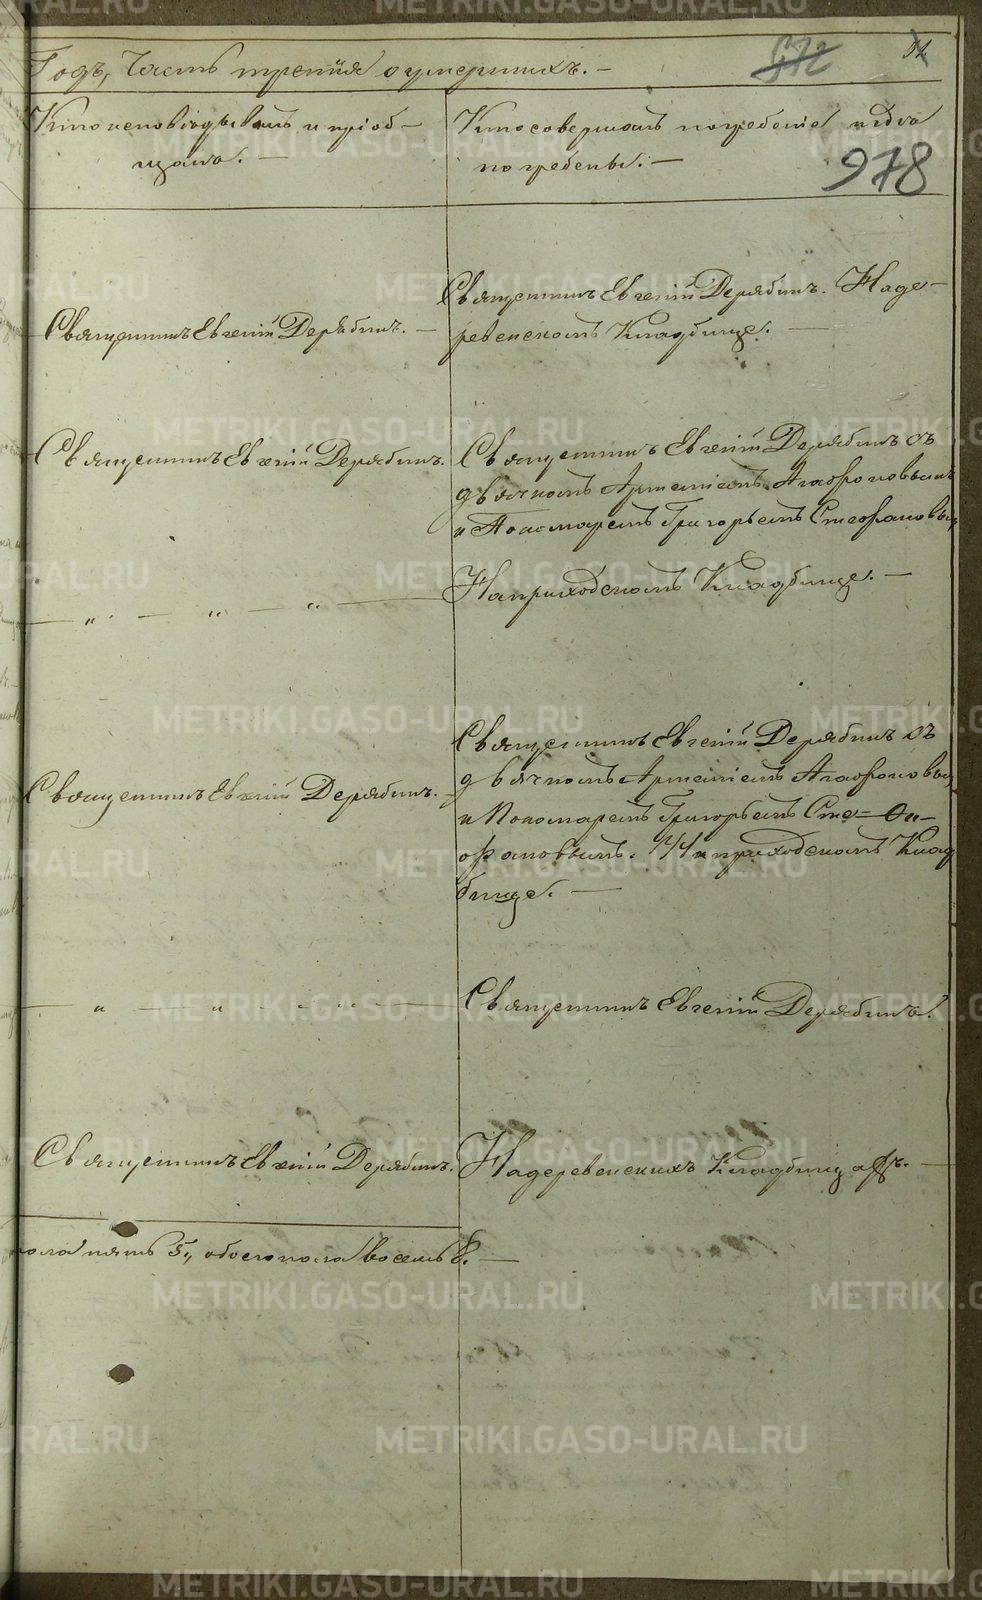 Годъ, Часть третія о умершихъ. —
Кто исповѣдывалъ и пріоб-
щалъ. —
Кто совершалъ погребеніе и гдѣ
погребены. —
978
Священникъ Евгеній Дерябинъ. —
Священникъ Евгеній Дерябинъ. На де-
ревенскомъ Кладбище. —
Священникъ Евгеній Дерябинъ.
Священникъ Евгеній Дерябинъ съ
дьячкомъ Артеміемъ Агафоновымъ
и Пономаремъ Григорьемъ Стефановы
На приходскомъ Кладбище. —
— „ — „ — „ —
Священникъ Евгеній Дерябинъ.
Священникъ Евгеній Дерябинъ съ
дьячкомъ Артеміемъ Агафоновы
и Пономаремъ Григорьемъ Сте-
фановымъ. На приходскомъ Клад
бище. —
— „ — „ — „ —
Священникъ Евгеній Дерябинъ.
Священникъ Евгеній Дерябинъ.
На деревенскихъ Кладбищахъ. —
пола пять 5, обоего пола восемь 8. —
METRIKI.GASO-URAL.RU